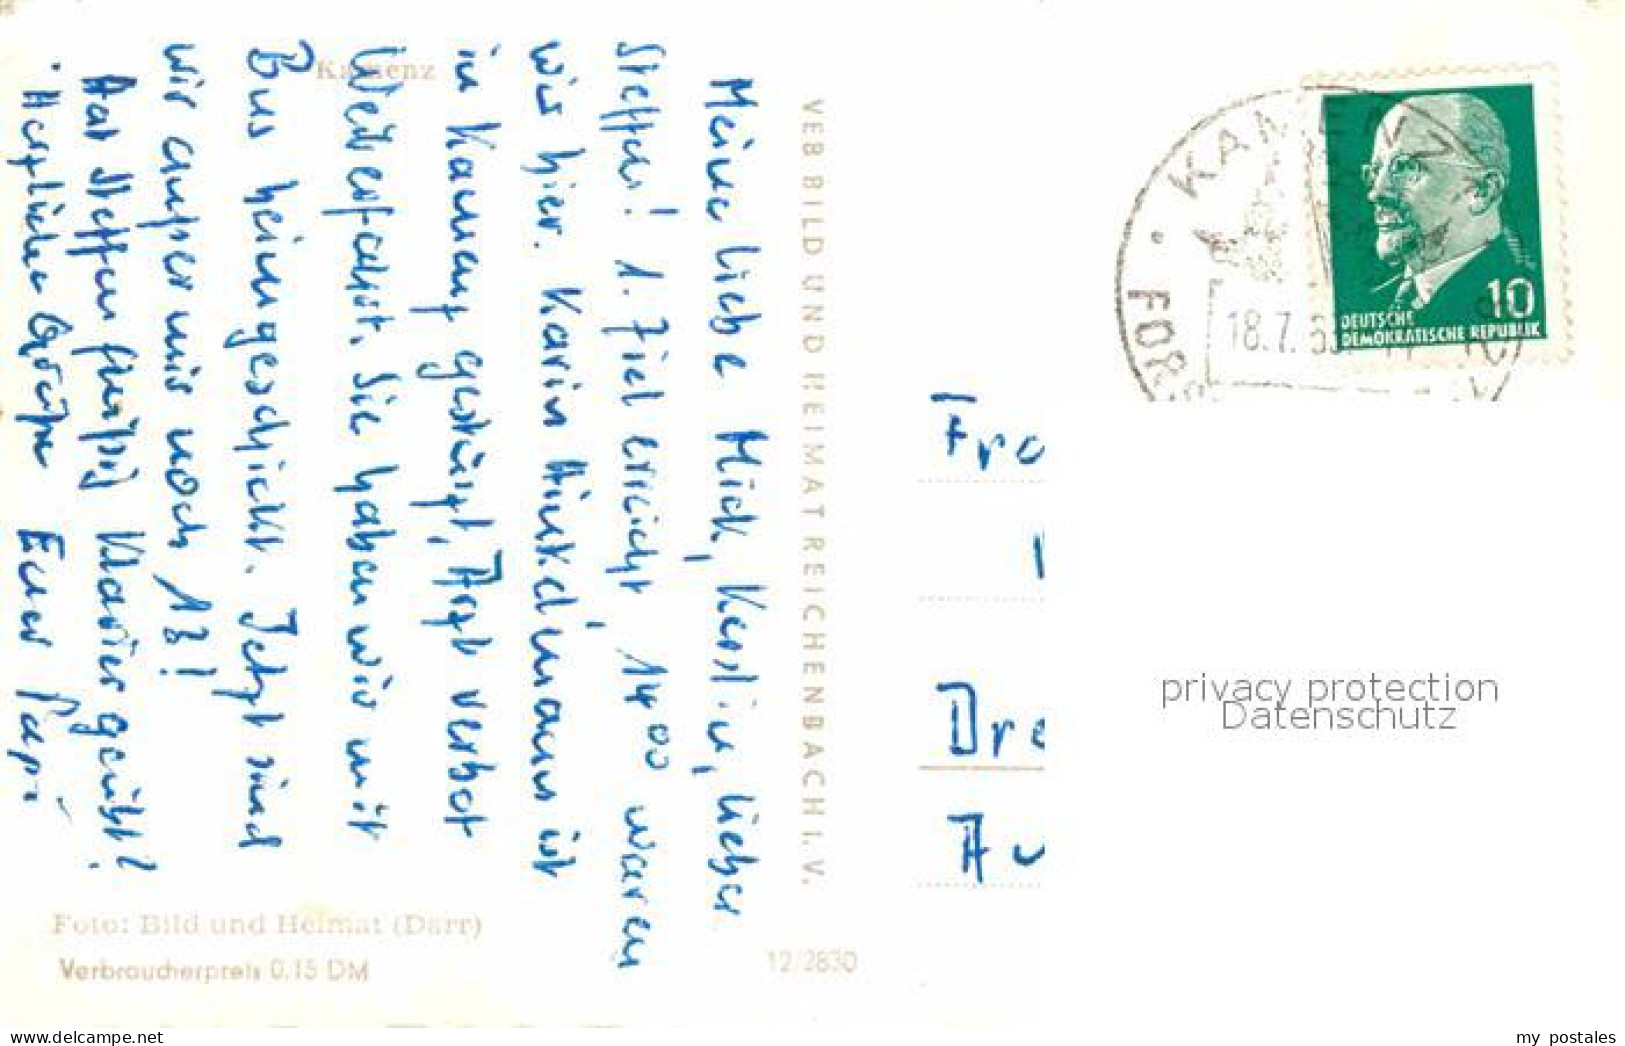 Kamenz
Meine liebe Mick, Kerstin, lieber
Steffen! 1. Ziel erreicht, 14⁰⁰ waren
wir hier. Karin Hinkelmann ist
in Kamenz gestürzt, Arzt verbot
Weiterfahrt. Sie haben wir mit
Bus heimgeschickt. Jetzt sind
wir außer mir noch 13!
Hat Steffen fleißig Klavier geübt?
Herzliche Grüße Euer Papi
Foto: Bild und Heimat (Darr)
Verbraucherpreis 0.15 DM
VEB BILD UND HEIMAT REICHENBACH I. V.
12/2830
KAMENZ
18.7.
10
DEUTSCHE
DEMOKRATISCHE REPUBLIK
Fra
Dre
Au
privacy protection
Datenschutz
delcampe.net
my_postales